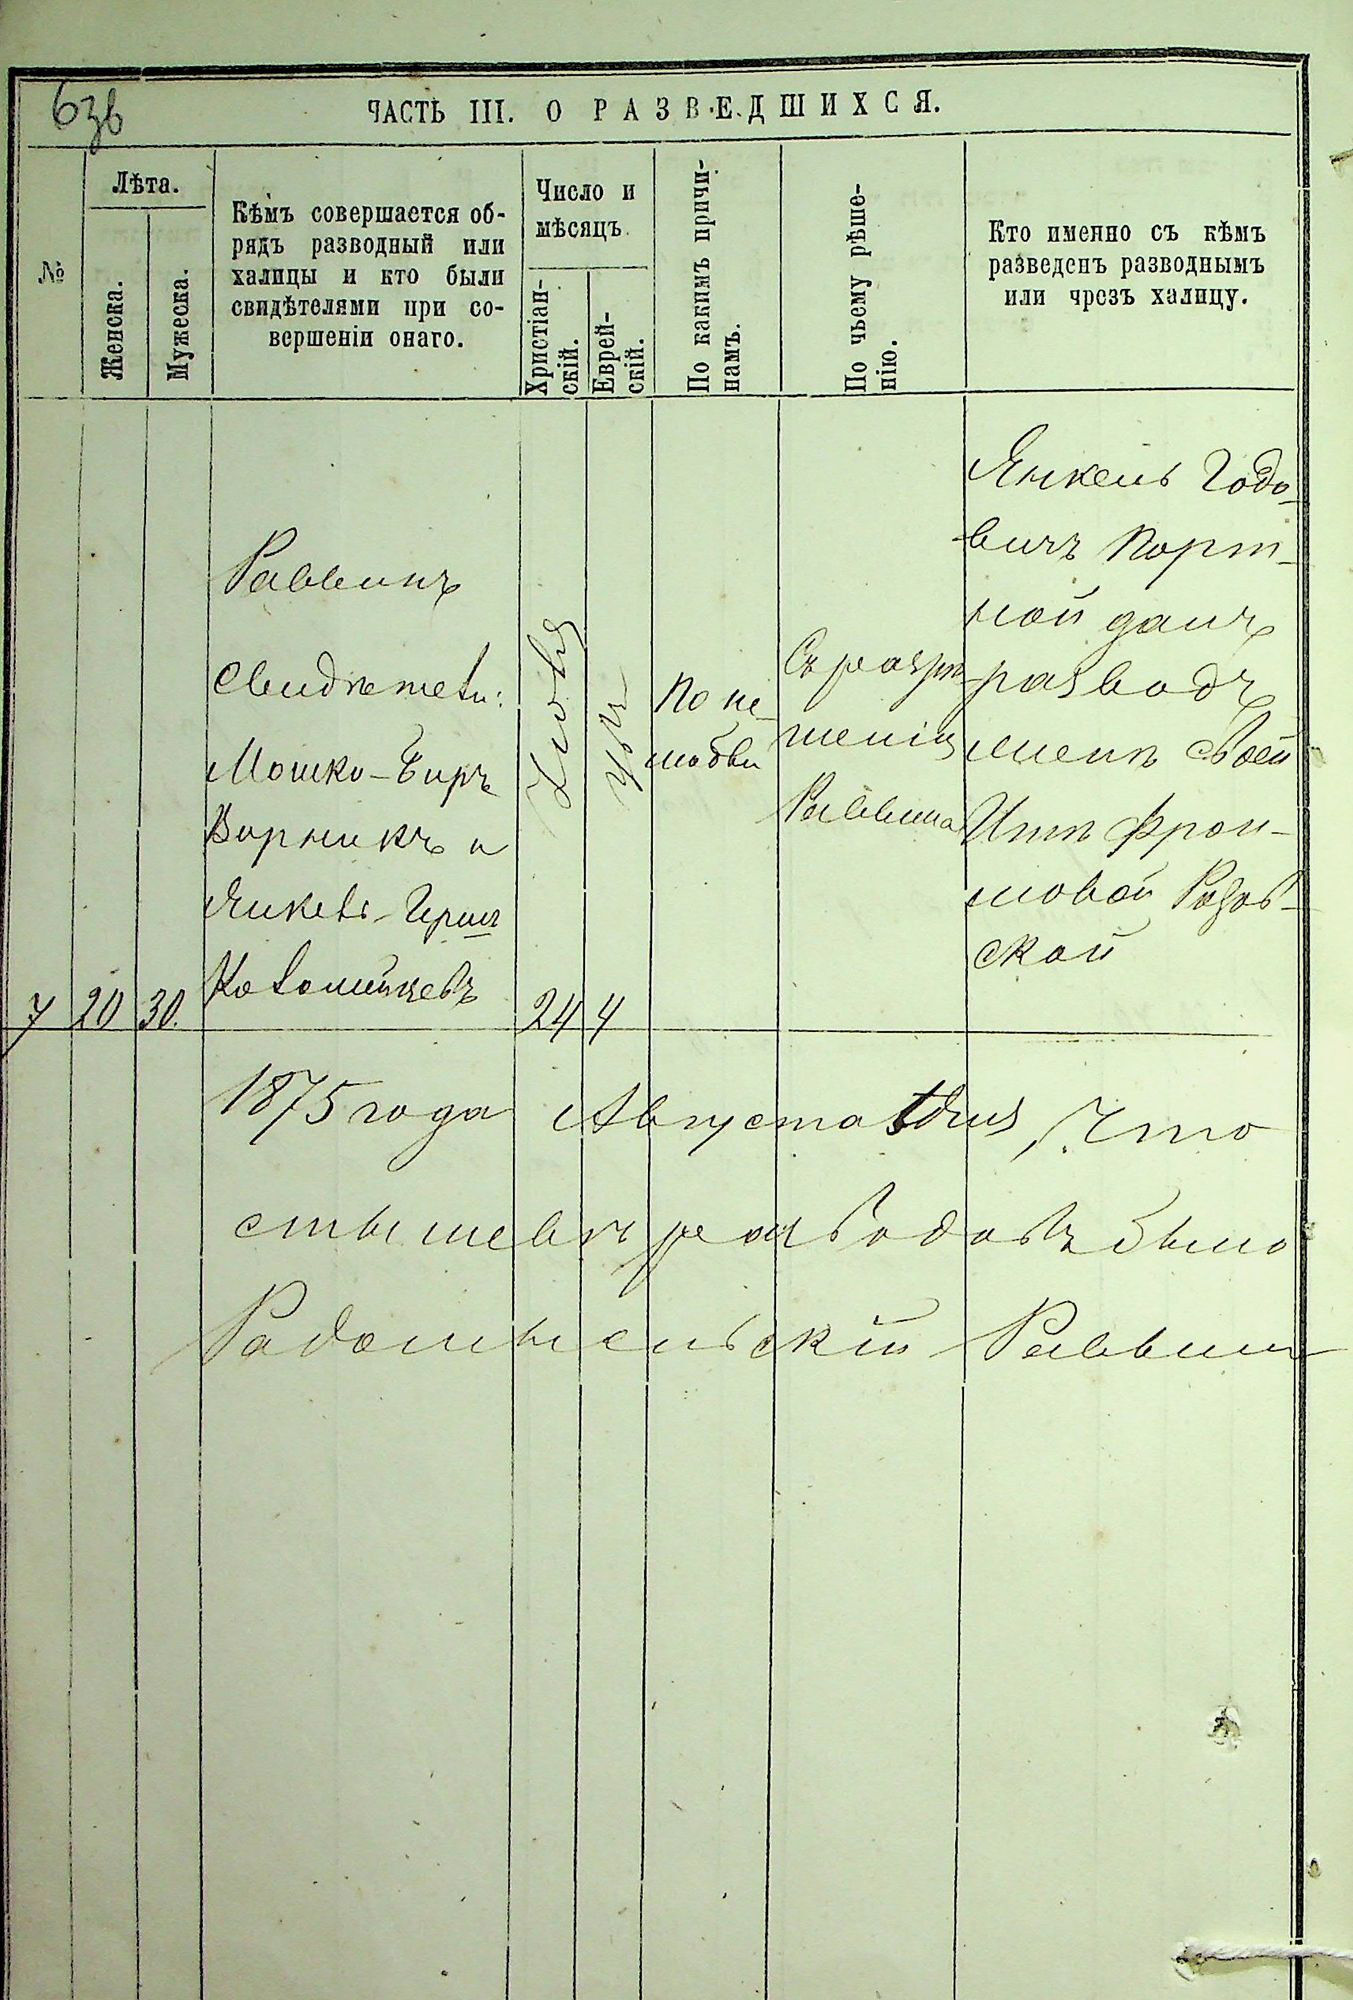 63в
ЧАСТЬ III. О РАЗВЕДШИХСЯ.
№
Лѣта.
Женска.
Мужеска.
Кѣмъ совершается об-
рядъ разводный или
халицы и кто были
свидѣтелями при со-
вершеніи онаго.
Число и
мѣсяцъ.
Христіан-
скій.
Еврей-
скій.
По какимъ причи-
намъ.
По чьему рѣше-
нію.
Кто именно съ кѣмъ
разведенъ разводнымъ
или чрезъ халицу.
7
20
30.
Раввинъ
Свидѣтели:
Мошко-Беръ
Ворникъ и
Янкель-Герш
Коломійцевъ
Іюля
24
4
По не-
любви
Съ разрѣ-
шенія
Раввина
Янкель Годо-
вичъ Порт-
ной далъ
разводъ
женѣ своей
Итѣ Фрои-
мовой
ской
1875 года Августа дня, Что
разводовъ было
Радомысльскій Раввинъ